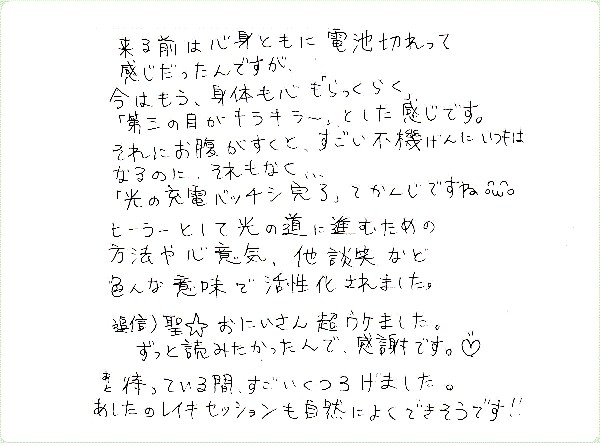 来る前は心身ともに電池切れって
感じだったんですが、
今はもう、身体も心も「らっくらく」
「第三の目がキラキラ〜」とした感じです。
それにお腹がすくと、すごい不機げんにいつもは
なるのに、それもなく、、、
「光の充電バッチシ完了」てかんじですね
ヒーラーとして光の道に進むための
方法や心意気、他談笑など
色んな意味で活性化されました。
追信)聖☆おにいさん超ウケました。
ずっと読みたかったんで、感謝です。♡
あと待っている間、すごいくつろげました。
あしたのレイキセッションも自然によくできそうです!!